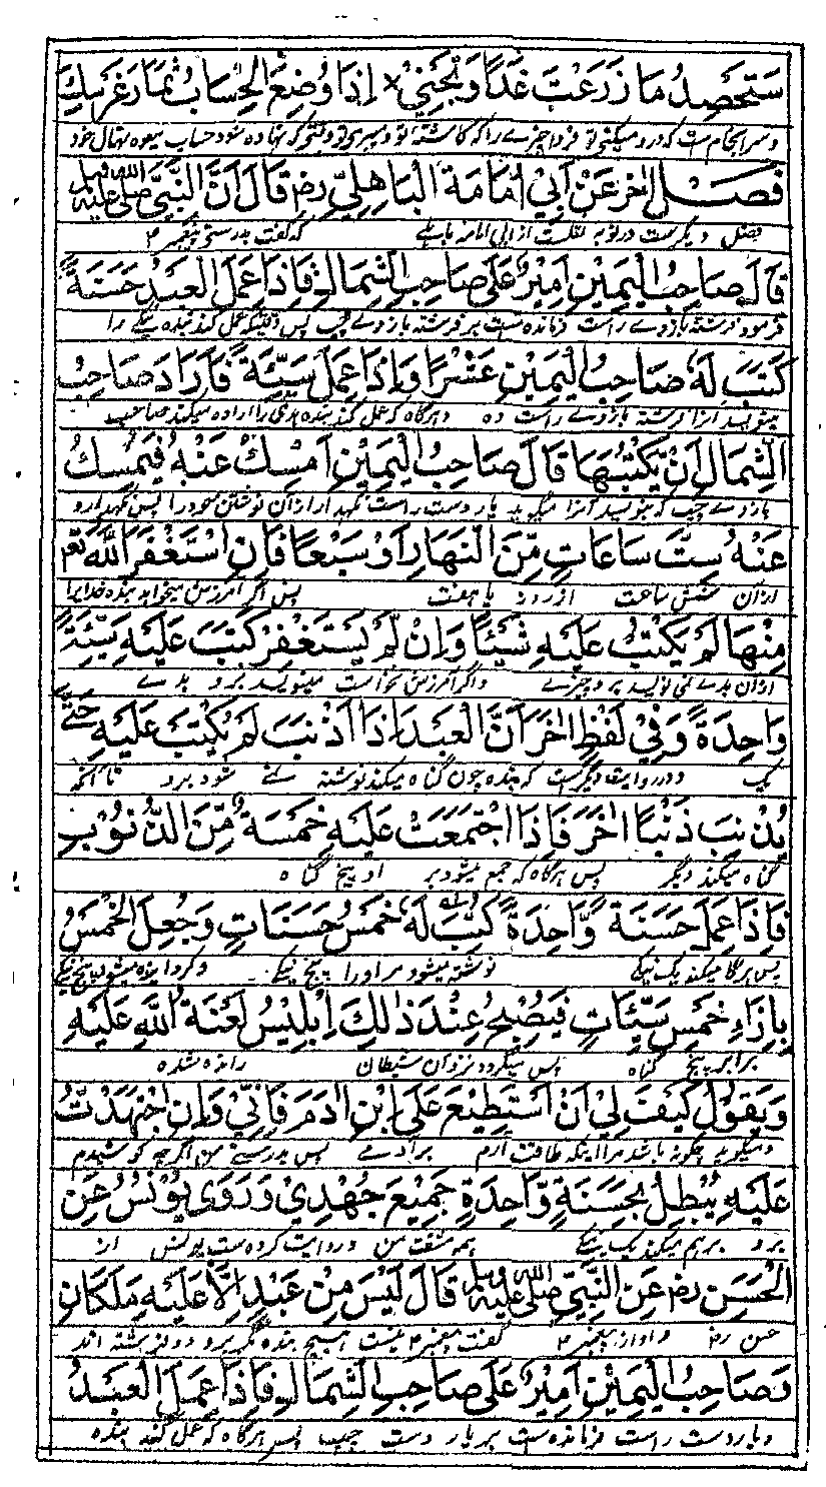 سَتَحْصِدُ مَا زَرَعْتَ غَدًا وَتَجْنِيْ × اِذَا وُضِعَ الْحِسَابُ ثِمَارَ غَرْسِكَ
فَصْلٌ اٰخَرُ عَنْ اَبِيْ اُمَامَةَ الْبَاهِلِيِّ رضـ قَالَ اَنَّ النَّبِيَّ صلى الله عليه وسلم
فصل دیگرست در توبه نقلست از ابی امامه باهلی که گفت بدرستی پیغمبر ؐ
قَالَ صَاحِبُ الْيَمِيْنِ اَمِيْرٌ عَلٰى صَاحِبِ الشِّمَالِ فَاِذَا عَمِلَ الْعَبْدُ حَسَنَةً
فرمود فرشته بازوے راست فرمانده ست بر فرشته بازوے چپ پس وقتیکه عمل کند بنده نیکی را
كَتَبَ لَهٗ صَاحِبُ الْيَمِيْنِ عَشْرًا وَاِذَا عَمِلَ سَيِّئَةً فَاَرَادَ صَاحِبُ
مینویسد آنرا فرشته بازوے راست ده و هرگاه که عمل کند بنده بدی را اراده میکند صاحب
الشِّمَالِ اَنْ يَّكْتُبَهَا قَالَ صَاحِبُ الْيَمِيْنِ اَمْسِكْ عَنْهُ فَيُمْسِكُ
بازوے چپ که بنویسد آنرا میگوید یار دست راست نگهدار از آن نوشتن خود را پس نگهدارد
عَنْهُ سِتَّ سَاعَاتٍ مِّنَ النَّهَارِ اَوْ سَبْعًا فَاِنِ اسْتَغْفَرَ اللّٰهَ تعم
از آن شش ساعت از روز یا هفت پس اگر آمرزش میخواهد بنده خدایرا
مِنْهَا لَمْ يَكْتُبْ عَلَيْهِ شَيْئًا وَاِنْ لَّمْ يَسْتَغْفِرْ كَتَبَ عَلَيْهِ سَيِّئَةً
از آن بدے نمی نویسد بر و چیزے و اگر آمرزش نخواست مینویسد بر و بدے
وَاحِدَةً وَفِيْ لَفْظٍ اٰخَرَ اَنَّ الْعَبْدَ اِذَا اَذْنَبَ لَمْ يُكْتَبْ عَلَيْهِ حَتّٰى
یک و در روایت دیگرست که بنده چون گناه میکند نوشته نمی شود برو تا آنکه
يُذْنِبَ ذَنْبًا اٰخَرَ فَاِذَا اجْتَمَعَتْ عَلَيْهِ خَمْسَةٌ مِّنَ الذُّنُوْبِ
گناه میکند دیگر پس هرگاه که جمع میشود بر او پنج گناه
فَاِذَا عَمِلَ حَسَنَةً وَّاحِدَةً كُتِبَ لَهٗ خَمْسُ حَسَنَاتٍ وَجُعِلَ الْخَمْسُ
پس هرگاه میکند یک نیکی نوشته میشود مر او را پنج نیکی و گردانیده میشود پنج نیکی
بِاِزَاءِ خَمْسِ سَيِّئَاتٍ فَيُصِيْحُ عِنْدَ ذٰلِكَ اِبْلِيْسُ لَعْنَةُ اللّٰهِ عَلَيْهِ
برابر پنج گناه پس میگرود نزد آن شیطان رانده شده
وَيَقُوْلُ كَيْفَ لِيْ اَنْ اَسْتَطِيْعَ عَلَى ابْنِ اٰدَمَ فَاِنِّيْ وَاِنِ اجْتَهَدْتُ
و میگوید چگونه باشد مرا اینکه طاقت آرم بر آدمی پس بدرستی من اگرچه کوشیدم
عَلَيْهِ يُبْطِلُ بِحَسَنَةٍ وَّاحِدَةٍ جَمِيْعَ جُهْدِيْ وَرَوٰى يُوْنُسُ عَنِ
برو برهم میکند یک نیکی همه مشقت من و روایت کرده ست یونس از
الْحَسَنِ رضـ عَنِ النَّبِيِّ صلى الله عليه وسلم قَالَ لَيْسَ مِنْ عَبْدٍ اِلَّا عَلَيْهِ مَلَكَانِ
حسن رضـ و او از پیغمبر ؐ گفت پیغمبر ؐ نیست هیچ بنده مگر برو دو فرشته اند
وَصَاحِبُ الْيَمِيْنِ اَمِيْرٌ عَلٰى صَاحِبِ الشِّمَالِ فَاِذَا عَمِلَ الْعَبْدُ
و یار دست راست فرمانده ست بر یار دست چپ پس هرگاه که عمل کند بنده